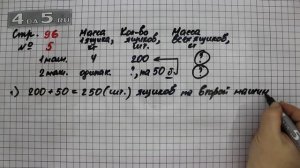 4 OT 5.RU
Стр. 96 Масса Кол-во Масса
№ 5 1 ящика, ящиков, всех ящиков,
кг шт. кг
1 маш. 4 200 ?
2 маш. одинак. ?, на 50 б. ?
1) 200 + 50 = 250 (шт.) ящиков на второй машин